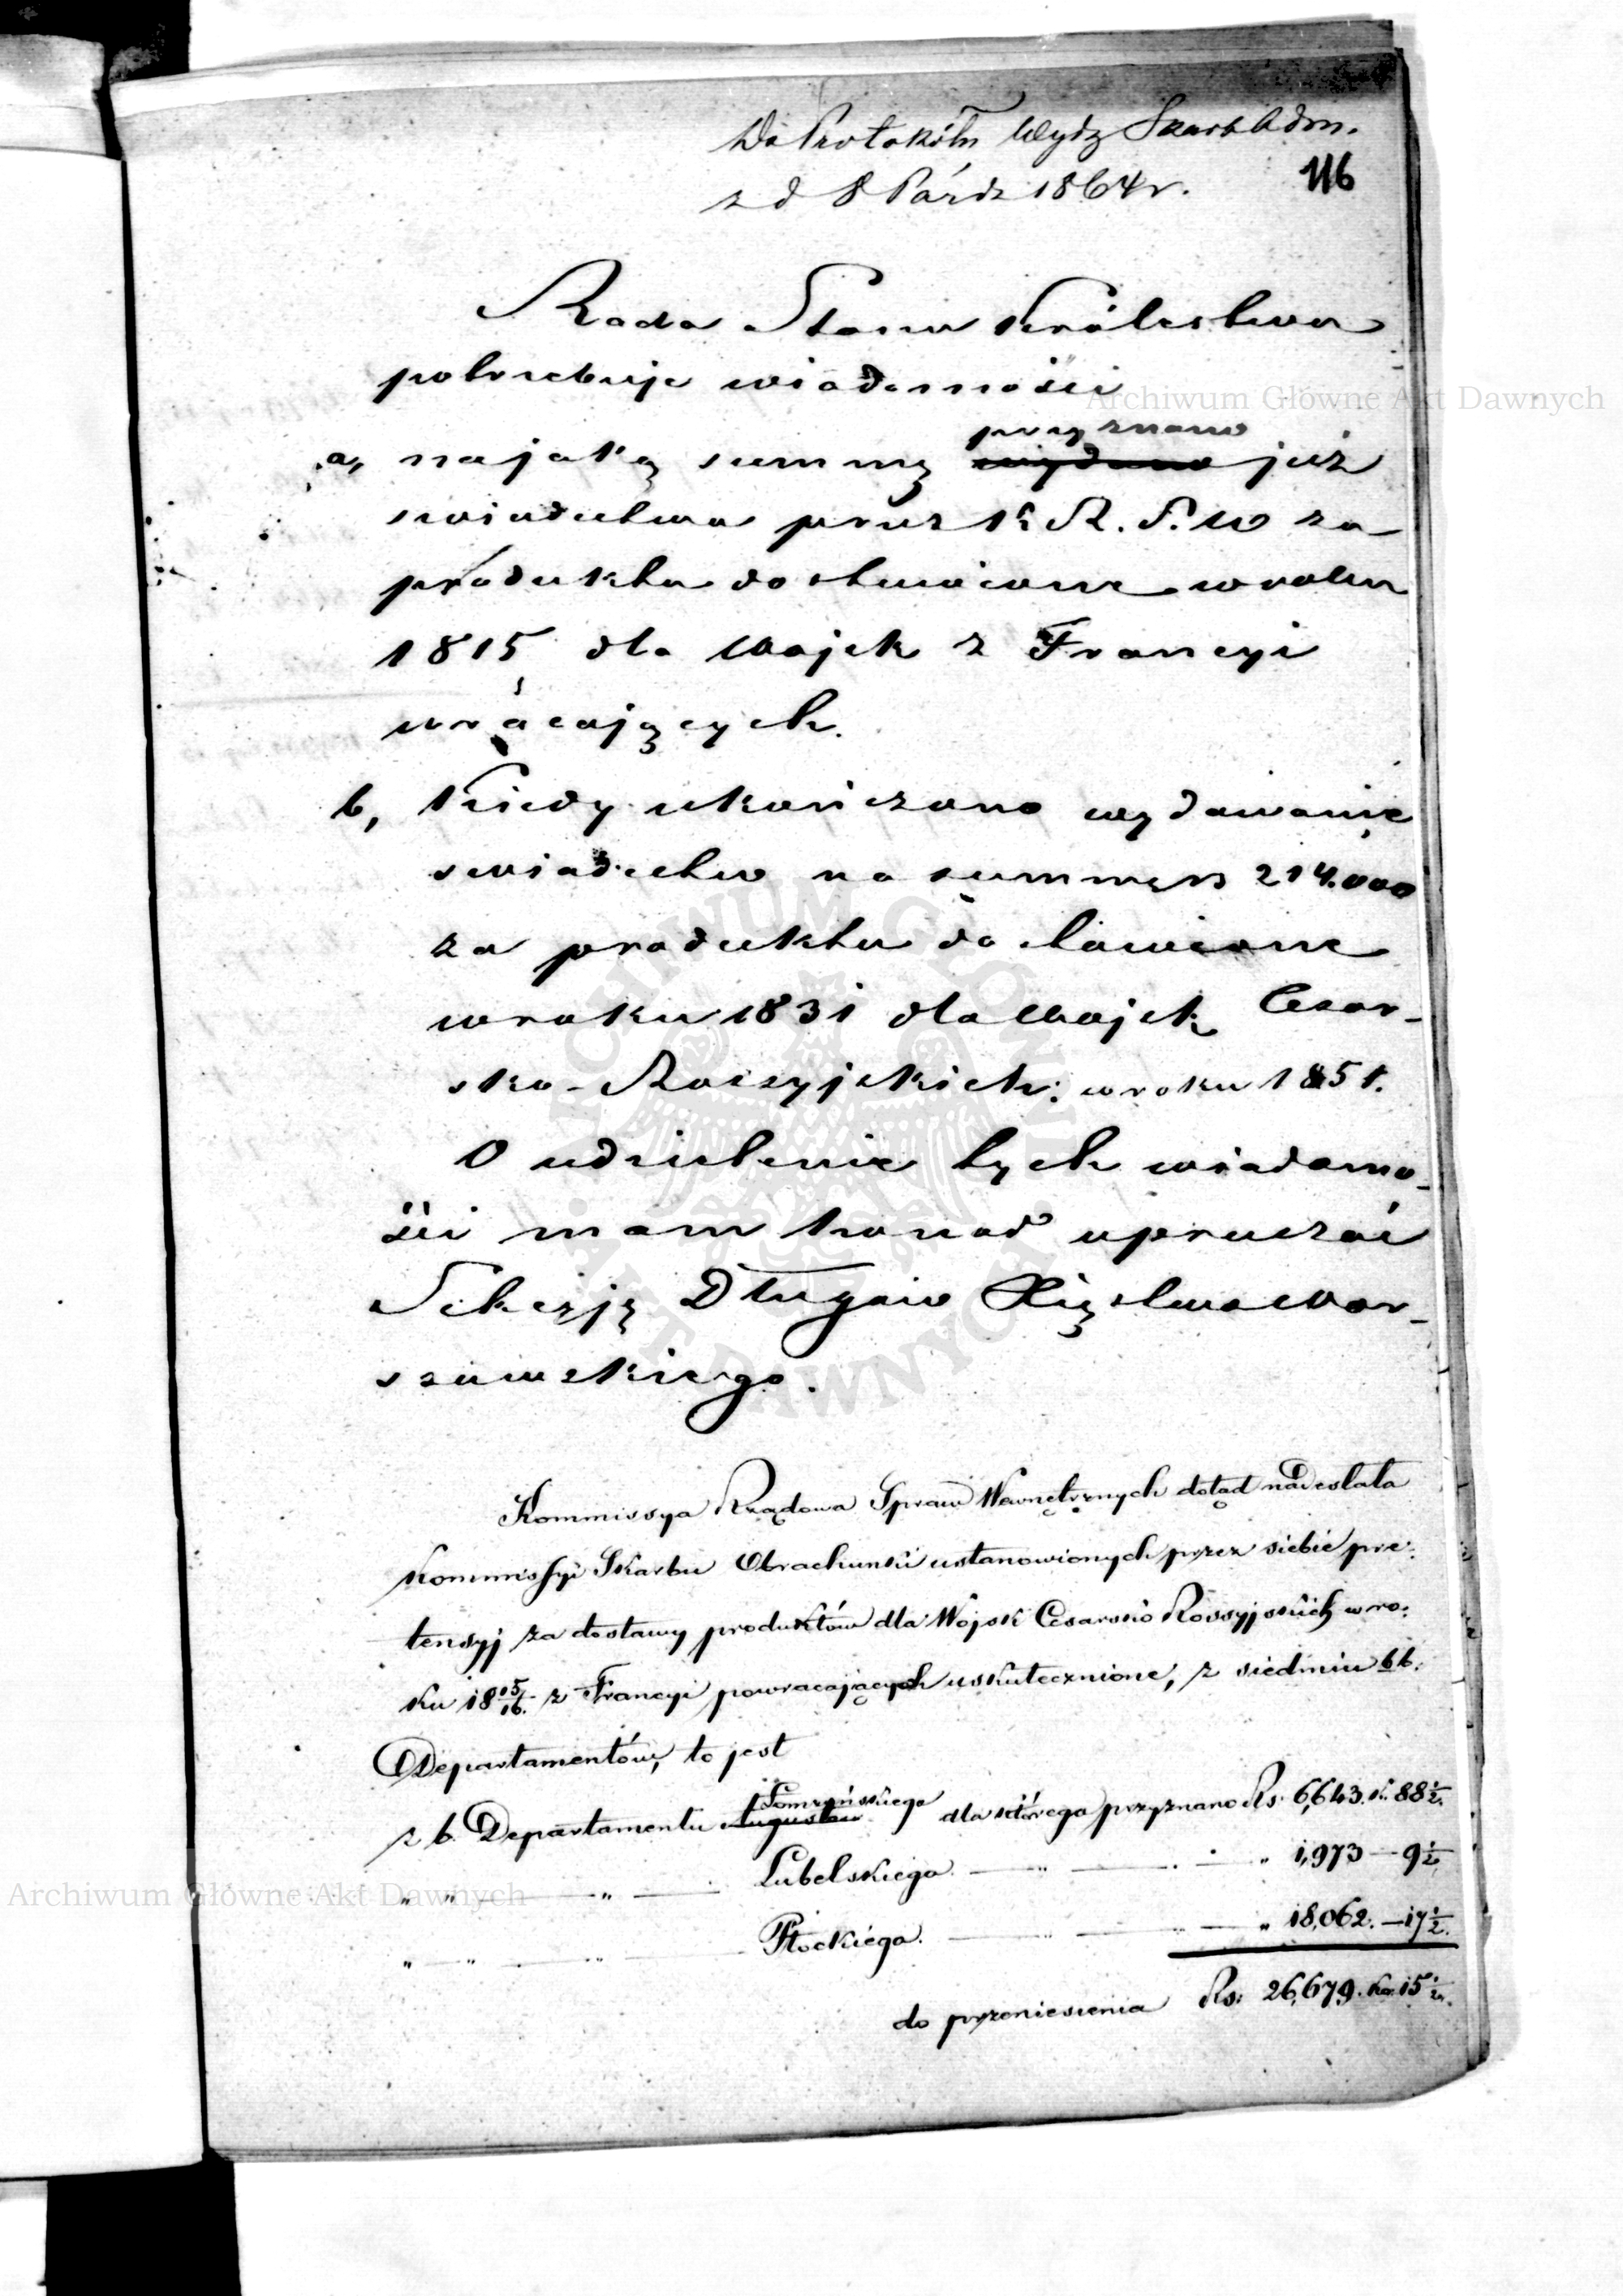 Do Protokółu Wydz Skarb Adm.
z d 8 Paźdz 1864 r.
116
Rada Stanu Królestwa
potrzebuje wiadomości
Archiwum Główne Akt Dawnych
przyznano
a, na jaką summę wydano już
swiadectwa przez K R. S. W za
produkta dostawione w roku
1815 dla Wojsk z Francyi
wracających.
b, Kiedy ukończono wydawanie
swiadectw na summę rs 214.000
za produkta dostawione
w roku 1831 dla Wojsk Cesar-
sko-Rossyjskich. w roku 1851.
O udzielenie tych wiadomo-
ści mam honor upraszać
Sekcyję Długów Xięstwa War-
szawskiego.
ARCHIWUM GŁÓWNE AKT DAWNYCH
Kommissya Rządowa Spraw Wewnętrznych dotąd nadesłała
Kommissyi Skarbu Obrachunki ustanowionych przez siebie pre:
tensyj za dostawy produktów dla Wojsk Cesarsko Rossyjskich w ro:
ku 18 15/16. z Francyi powracających uskutecznione, z siedmiu bb.
Departamentów, to jest
Łomżyńskiego
z b. Departamentu Augustow dla którego przyznano Rs. 6,643. k. 88 1/2.
" " — " — Lubelskiego — " — . — " 1,973 — 9 1/2
" — " — " — Płockiego. — " — " — " 18,062. — 17 1/2.
Archiwum Główne Akt Dawnych
do przeniesienia Rs: 26,679. Ko. 15 1/2.